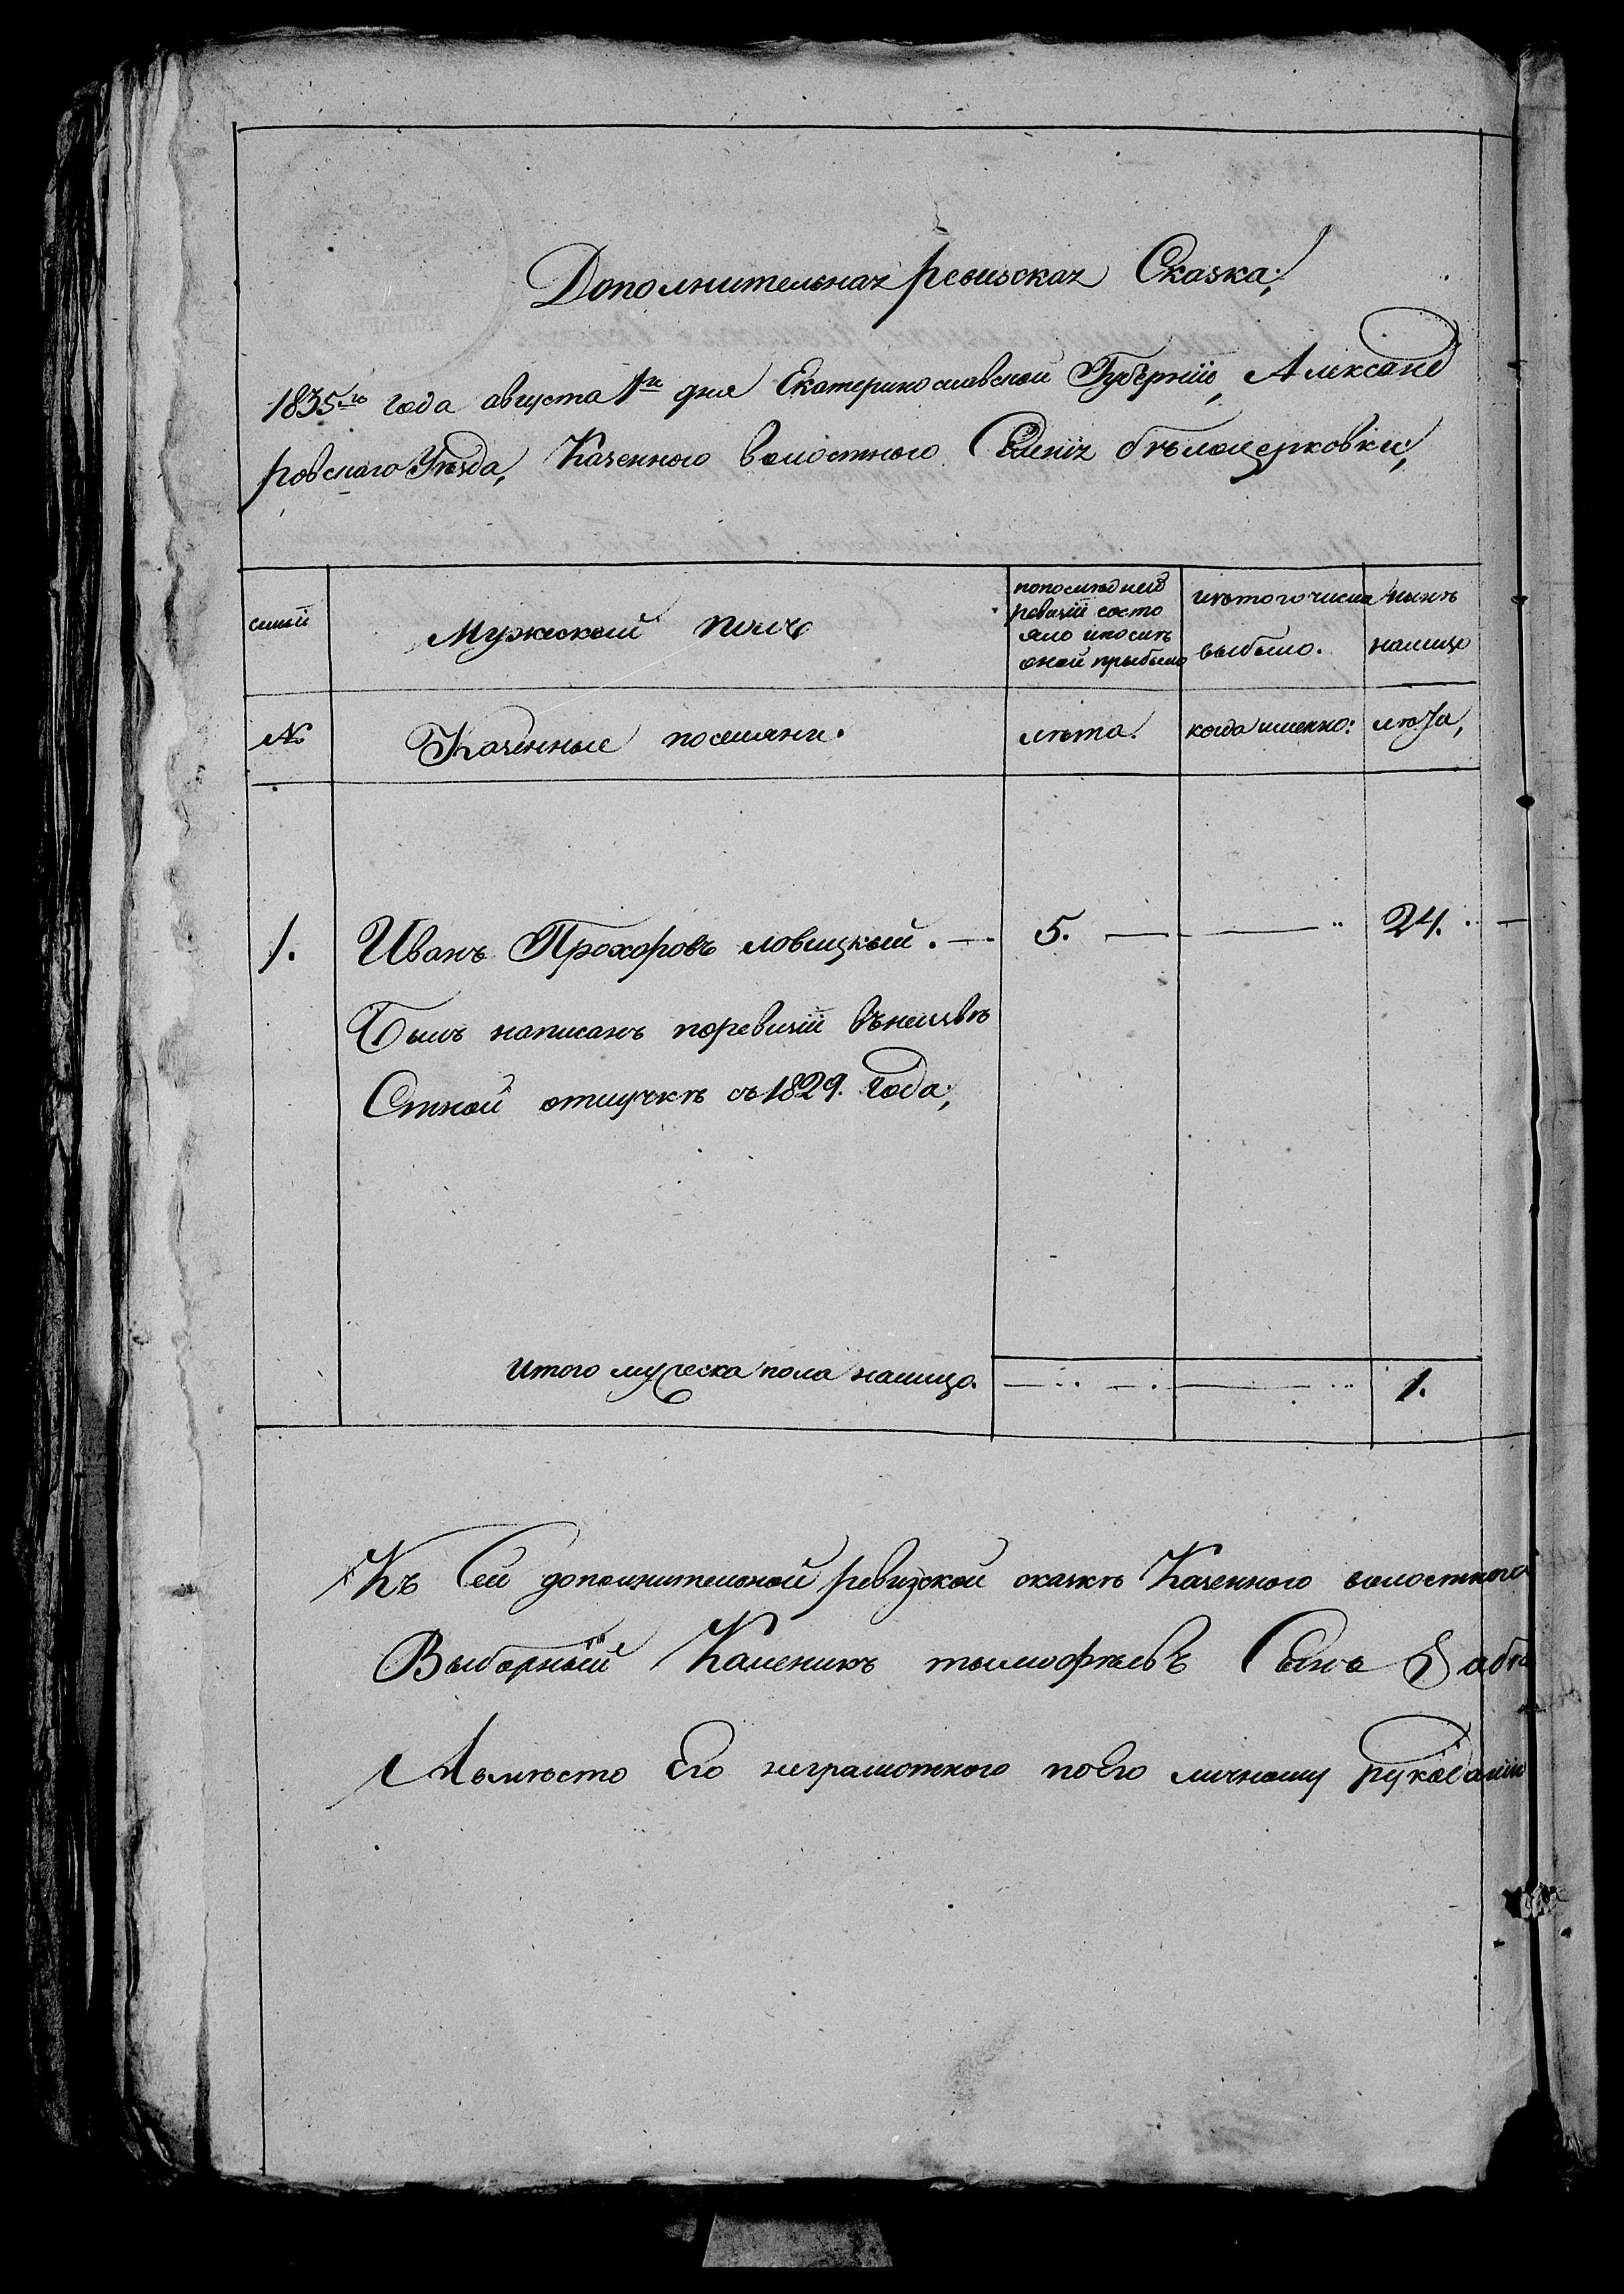 Дополнительная ревизская Сказка;
1835го года августа 1го дня Екатеринославской Губерніи, Александ
ровскаго Уезда, Казенного волостного Селенія бѣлоцерковки,
семьи
Мужеский полъ
попоследней ревизіи состо яло ипослѣ оной прыбыло
изтого числа выбыло.
нынѣ налицо
№
Казенные поселяни.
лѣта.
когда именно:
лѣта,
1. Иванъ Прохоровъ ловицкый. 5. 24.
Былъ написанъ поревизіи внеизвѣ
Стной отлучкѣ съ 1829. года,
Итого мужеска пола налицо. 1.
Къ Сей дополнительной ревизской сказкѣ Казенного волостного
Выборный Каленикъ тымофѣевъ Сынъ
Авмѣсто Его неграмотного поЕго личному рукоданію